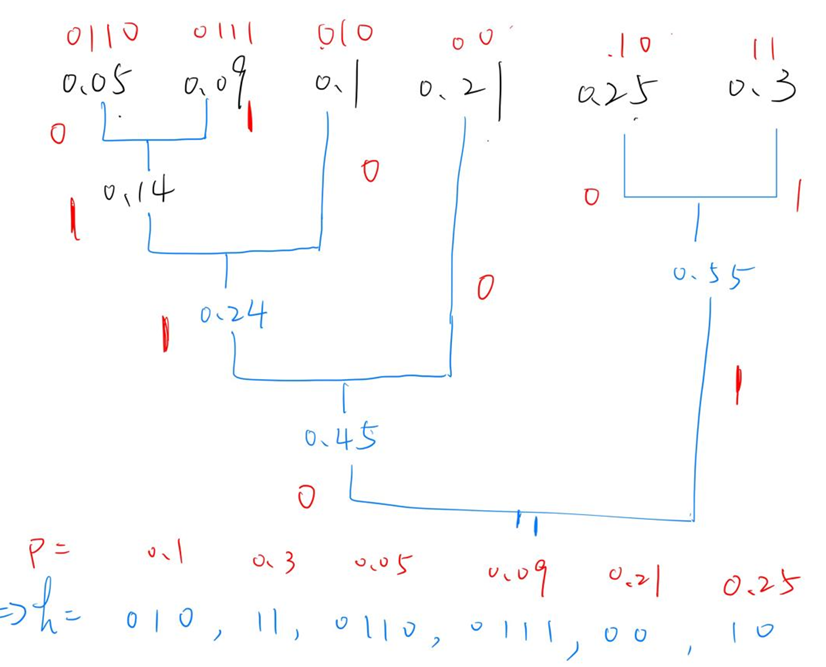 0110 0111 010 00 10 11
0.05 0.09 0.1 0.21 0.25 0.3
0 1
0 0 1
0.14
1
0.55
0
0.24
1
1
0.45
0
1
P= 0.1 0.3 0.05 0.09 0.21 0.25
=> h= 010, 11, 0110, 0111, 00, 10